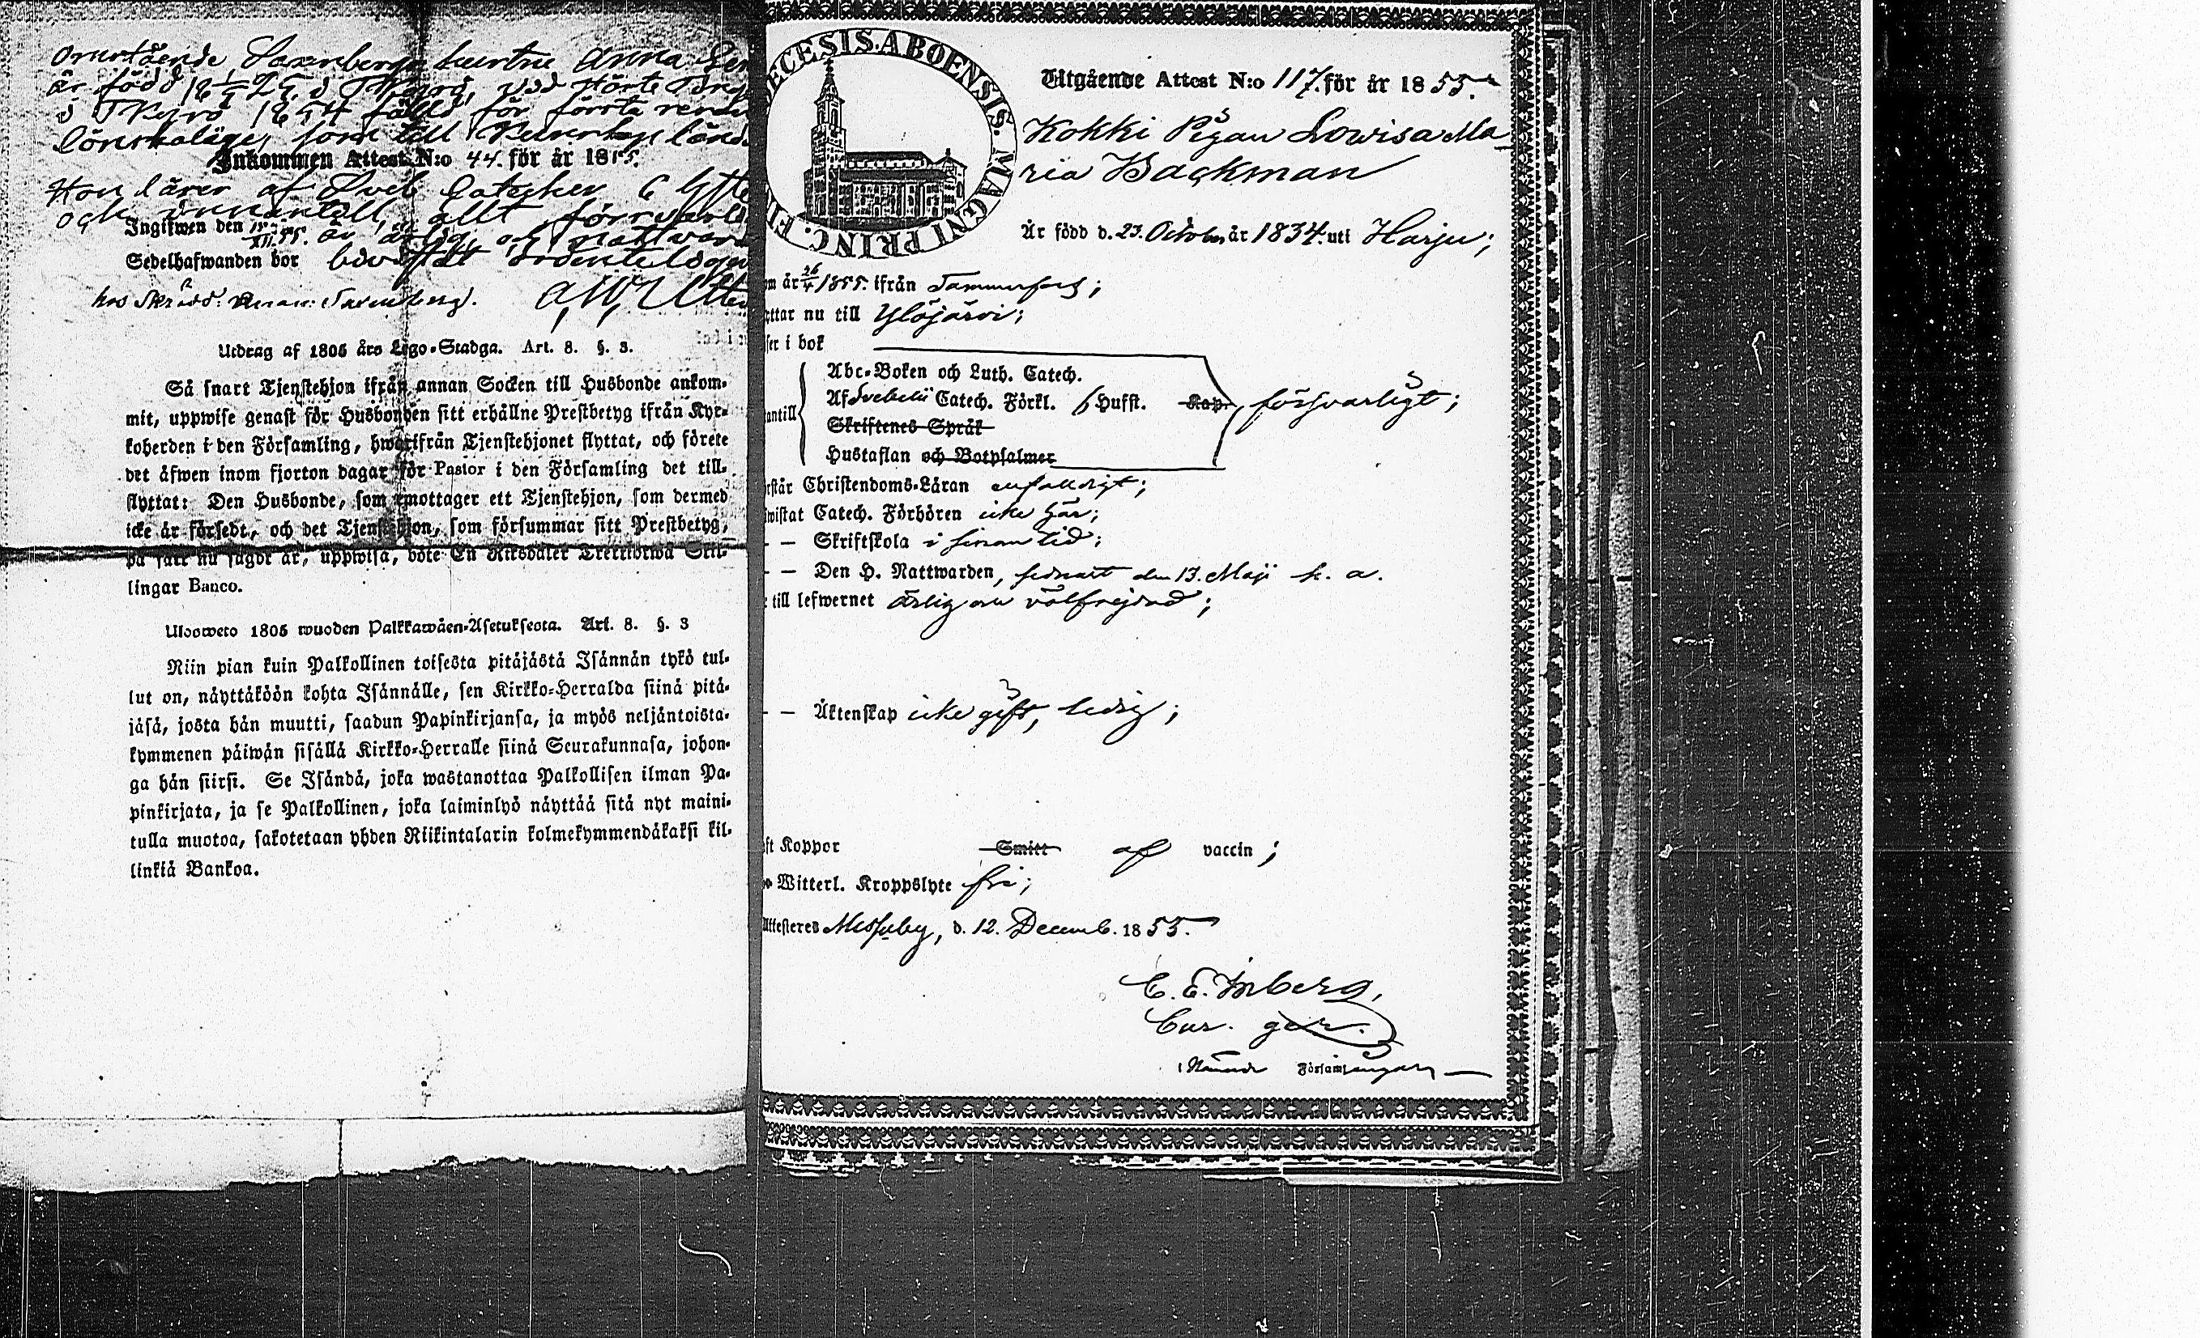 är född
Inkommen Attest N:o 44. för år 1855.
Hon läser af Sveb. Cateches 6
och innantill allt försvarli
Ingifwen den
Sedelhafwanden bor
Utdrag af 1805 års Lego-Stadga. Art. 8. §. 3.
Så snart Tjenstehjon ifrån annan Socken till Husbonde ankom-
mit, uppwise genast för Husbonden sitt erhållne Prestbetyg ifrån Kyr-
koherden i den Församling, hwarifrån Tjenstehjonet flyttat, och förete
det äfwen inom fjorton dagar för Pastor i den Församling det till-
flyttat: Den Husbonde, som emottager ett Tjenstehjon, som dermed
icke är försedt, och det Tjenstehjon, som försummar sitt Prestbetyg,
på sätt nu sagdt är, uppwisa, böte En Riksdaler Trettiotwå Skil-
lingar Banco.
Ulosweto 1805 wuoden Palkkawäen-Asetuksesta. Art. 8. §. 3
Niin pian kuin Palkollinen toisesta pitäjästä Isännän tykö tul-
lut on, näyttäköön kohta Isännälle, sen Kirkko-Herralda siinä pitä-
jäsä, josta hän muutti, saadun Papinkirjansa, ja myös neljäntoista-
kymmenen päiwän sisällä Kirkko-Herralle siinä Seurakunnasa, johon-
ga hän siirsi. Se Isändä, joka wastanottaa Palkollisen ilman Pa-
pinkirjata, ja se Palkollinen, joka laiminlyö näyttää sitä nyt maini-
tulla muotoa, sakotetaan yhden Riikintalarin kolmekymmendäkaksi kil-
linkiä Bankoa.
ECESIS. ABOENSIS. MAGNI PRINC. FI
Utgående Attest N:o 117. för år 1855.
Kokki Pigan Lowisa Ma-
ria Backman
Är född d. 23. October år 1834. uti Harju;
m år 26/4 1855. ifrån Tammerfors;
ttar nu till Ylöjärvi;
ser i bok
antill
Abc-Boken och Luth. Catech.
Af Svebelii Catech. Förkl. 6 Hufst. Kap. försvarligt;
Skriftenes Språk
Hustaflan och Botpsalmer
rstår Christendoms-Läran enfaldigt;
wistat Catech. Förhören icke här;
– – Skriftskola i sinom tid;
– – Den H. Nattwarden, sednast den 13. Maji h. a.
e till lefwernet ärlig och välfrejdad;
– – Äktenskap icke gift, ledig;
ft Koppor Smitt af vaccin;
Witterl. Kroppslyte fri;
Attesteres Messuby, d. 12. Decemb. 1855.
Församlingar